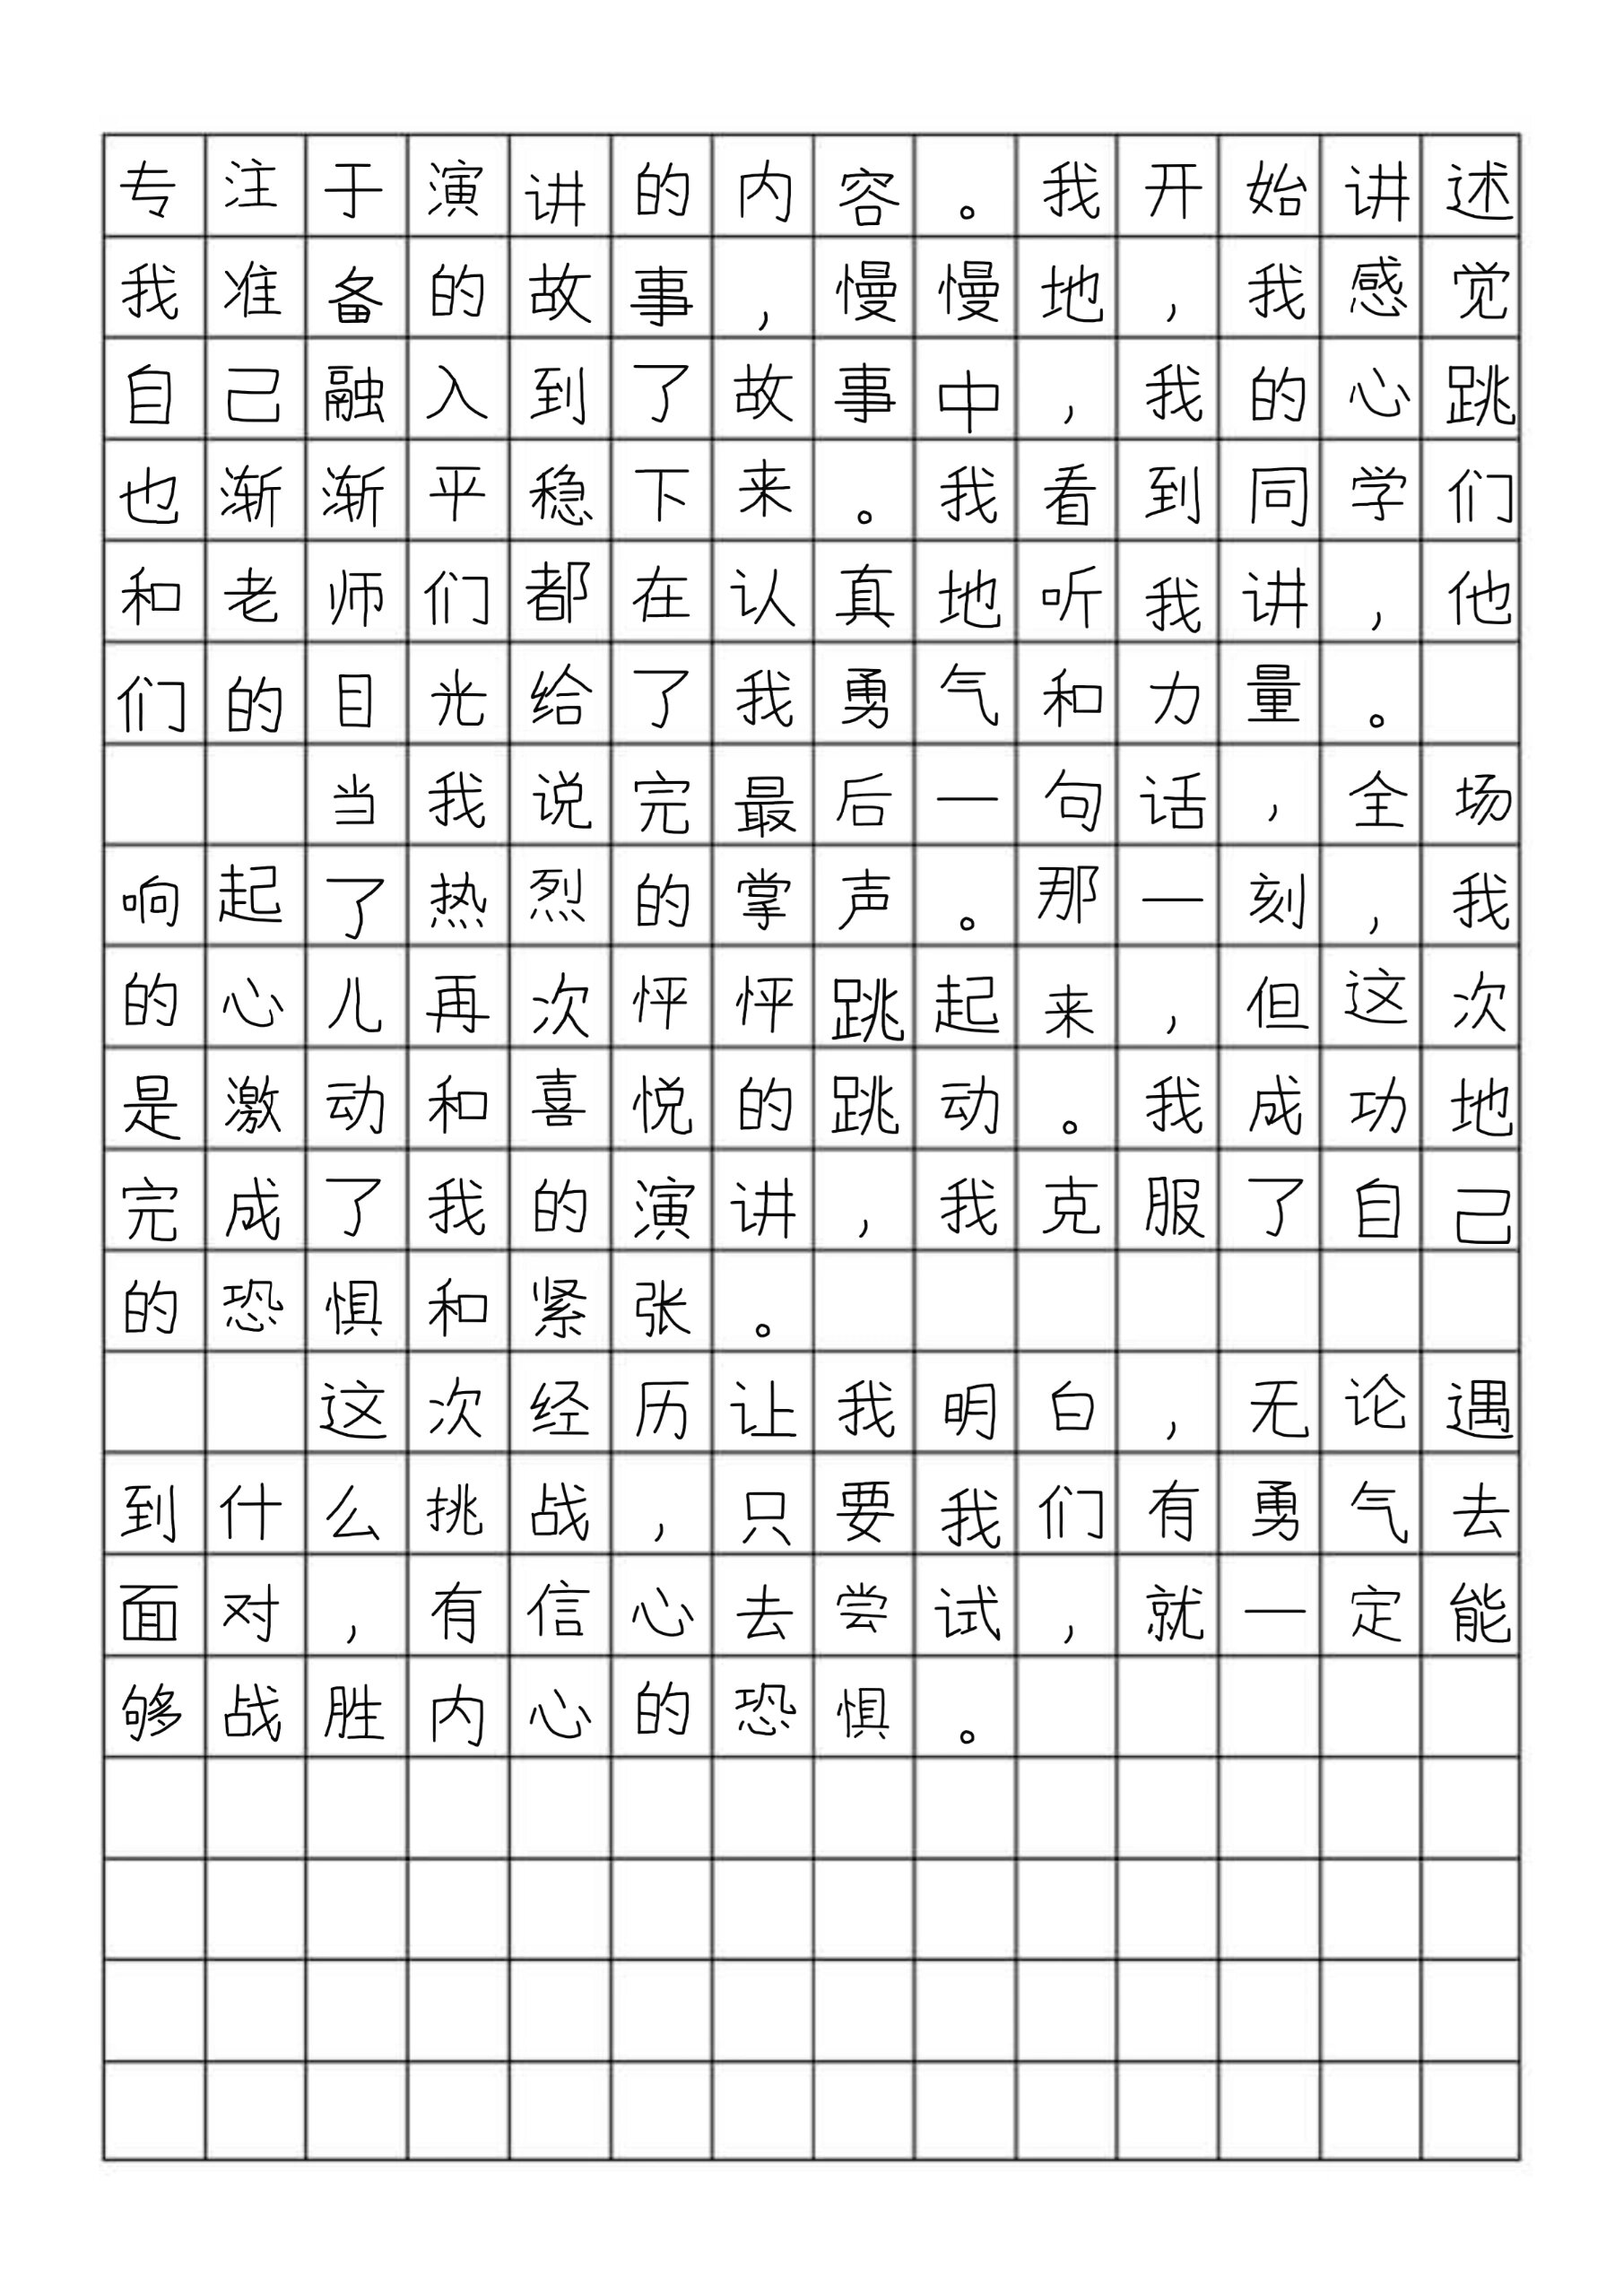 专注于演讲的内容。我开始讲述
我准备的故事，慢慢地，我感觉
自己融入到了故事中，我的心跳
也渐渐平稳下来。我看到同学们
和老师们都在认真地听我讲，他
们的目光给了我勇气和力量。
当我说完最后一句话，全场
响起了热烈的掌声。那一刻，我
的心儿再次怦怦跳起来，但这次
是激动和喜悦的跳动。我成功地
完成了我的演讲，我克服了自己
的恐惧和紧张。
这次经历让我明白，无论遇
到什么挑战，只要我们有勇气去
面对，有信心去尝试，就一定能
够战胜内心的恐惧。